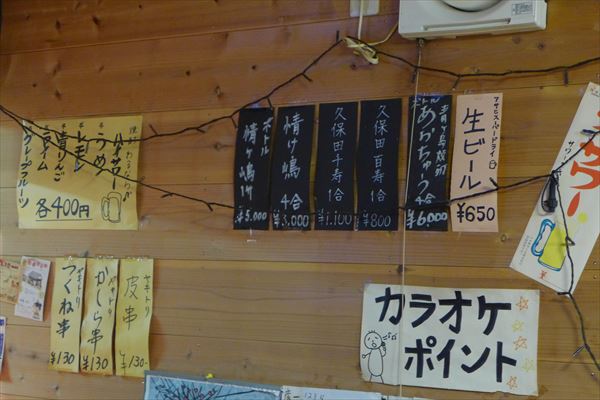 ハイサワー
うめ
レモン
青りんご
ライム
グレープフルーツ
各400円
ボトル
情け嶋
¥5,000
情け嶋
4合
¥3,000
久保田千寿
1合
¥1,100
久保田百寿
1合
¥800
青ヶ島焼酎
あおちゅう
4合
¥6,000
アサヒスーパードライ
生ビール
¥650
サワー
ヤキトリ
皮串
¥130-
ヤキトリ
かしら串
¥130
ヤキトリ
つくね串
¥130
カラオケ
ポイント